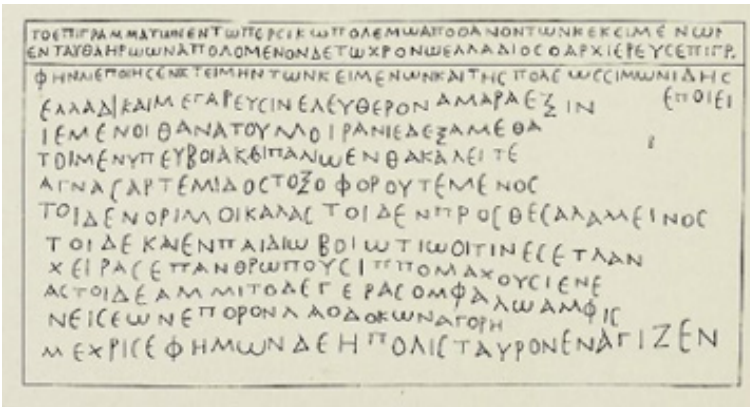 ΤΟΕΠΙΓΡΑΜΜΑΤΩΝΕΝΤΩΠΕΡϹΙΚΩΠΟΛΕΜΩΑΠΟΘΑΝΟΝΤΩΝΚΕΚΕΙΜΕΝΩΝ
ΕΝΤΑΥΘΑΗΡΩΩΝΑΠΟΛΟΜΕΝΟΝΔΕΤΩΧΡΟΝΩΕΛΛΑΔΙΟϹΟΑΡΧΙΕΡΕΥϹΕΠΙΓΡ.
ΦΗΝΑΙΕΠΟΗϹΕΝΙϹΤΕΙΜΗΝΤΩΝΚΕΙΜΕΝΩΝΚΑΙΤΗϹΠΟΛΕΩϹϹΙΜΩΝΙΔΗϹ
ΕΠΟΙΕΙ
ΕΛΛΑΔΙΚΑΙΜΕΓΑΡΕΥϹΙΝΕΛΕΥΘΕΡΟΝΑΜΑΡΑΕΞΙΝ
ΙΕΜΕΝΟΙΘΑΝΑΤΟΥΜΟΙΡΑΝΙΕΔΕΞΑΜΕΘΑ
ΤΟΙΜΕΝΥΠΕΥΒΟΙΑΚΕΙΠΑΛΩΕΝΘΑΚΑΛΕΙΤΕ
ΑΓΝΑϹΑΡΤΕΜΙΔΟϹΤΟΞΟΦΟΡΟΥΤΕΜΕΝΟϹ
ΤΟΙΔΕΝΟΡΙΜΟΙΚΑΛΑϹΤΟΙΔΕΝΠΡΟϹΘΕϹΑΛΑΜΕΙΝΟϹ
ΤΟΙΔΕΚΑΙΕΝΠΑΙΔΙΩΒΟΙΩΤΙΩΟΙΤΙΝΕϹΕΤΛΑΝ
ΧΕΙΡΑϹΕΠΑΝΘΡΩΠΟΥϹΙΠΠΟΜΑΧΟΥϹΙΕΝΕ
ΑϹΤΟΙΔΕΑΜΜΙΤΟΔΕΓΕΡΑϹΟΜΦΑΛΩΑΜΦΙϹ
ΝΕΙϹΕΩΝΕΠΟΡΟΝΛΑΟΔΟΚΩΝΑΓΟΡΗ
ΜΕΧΡΙϹΕΦΗΜΩΝΔΕΗΠΟΛΙϹΤΑΥΡΟΝΕΝΑΓΙΖΕΝ